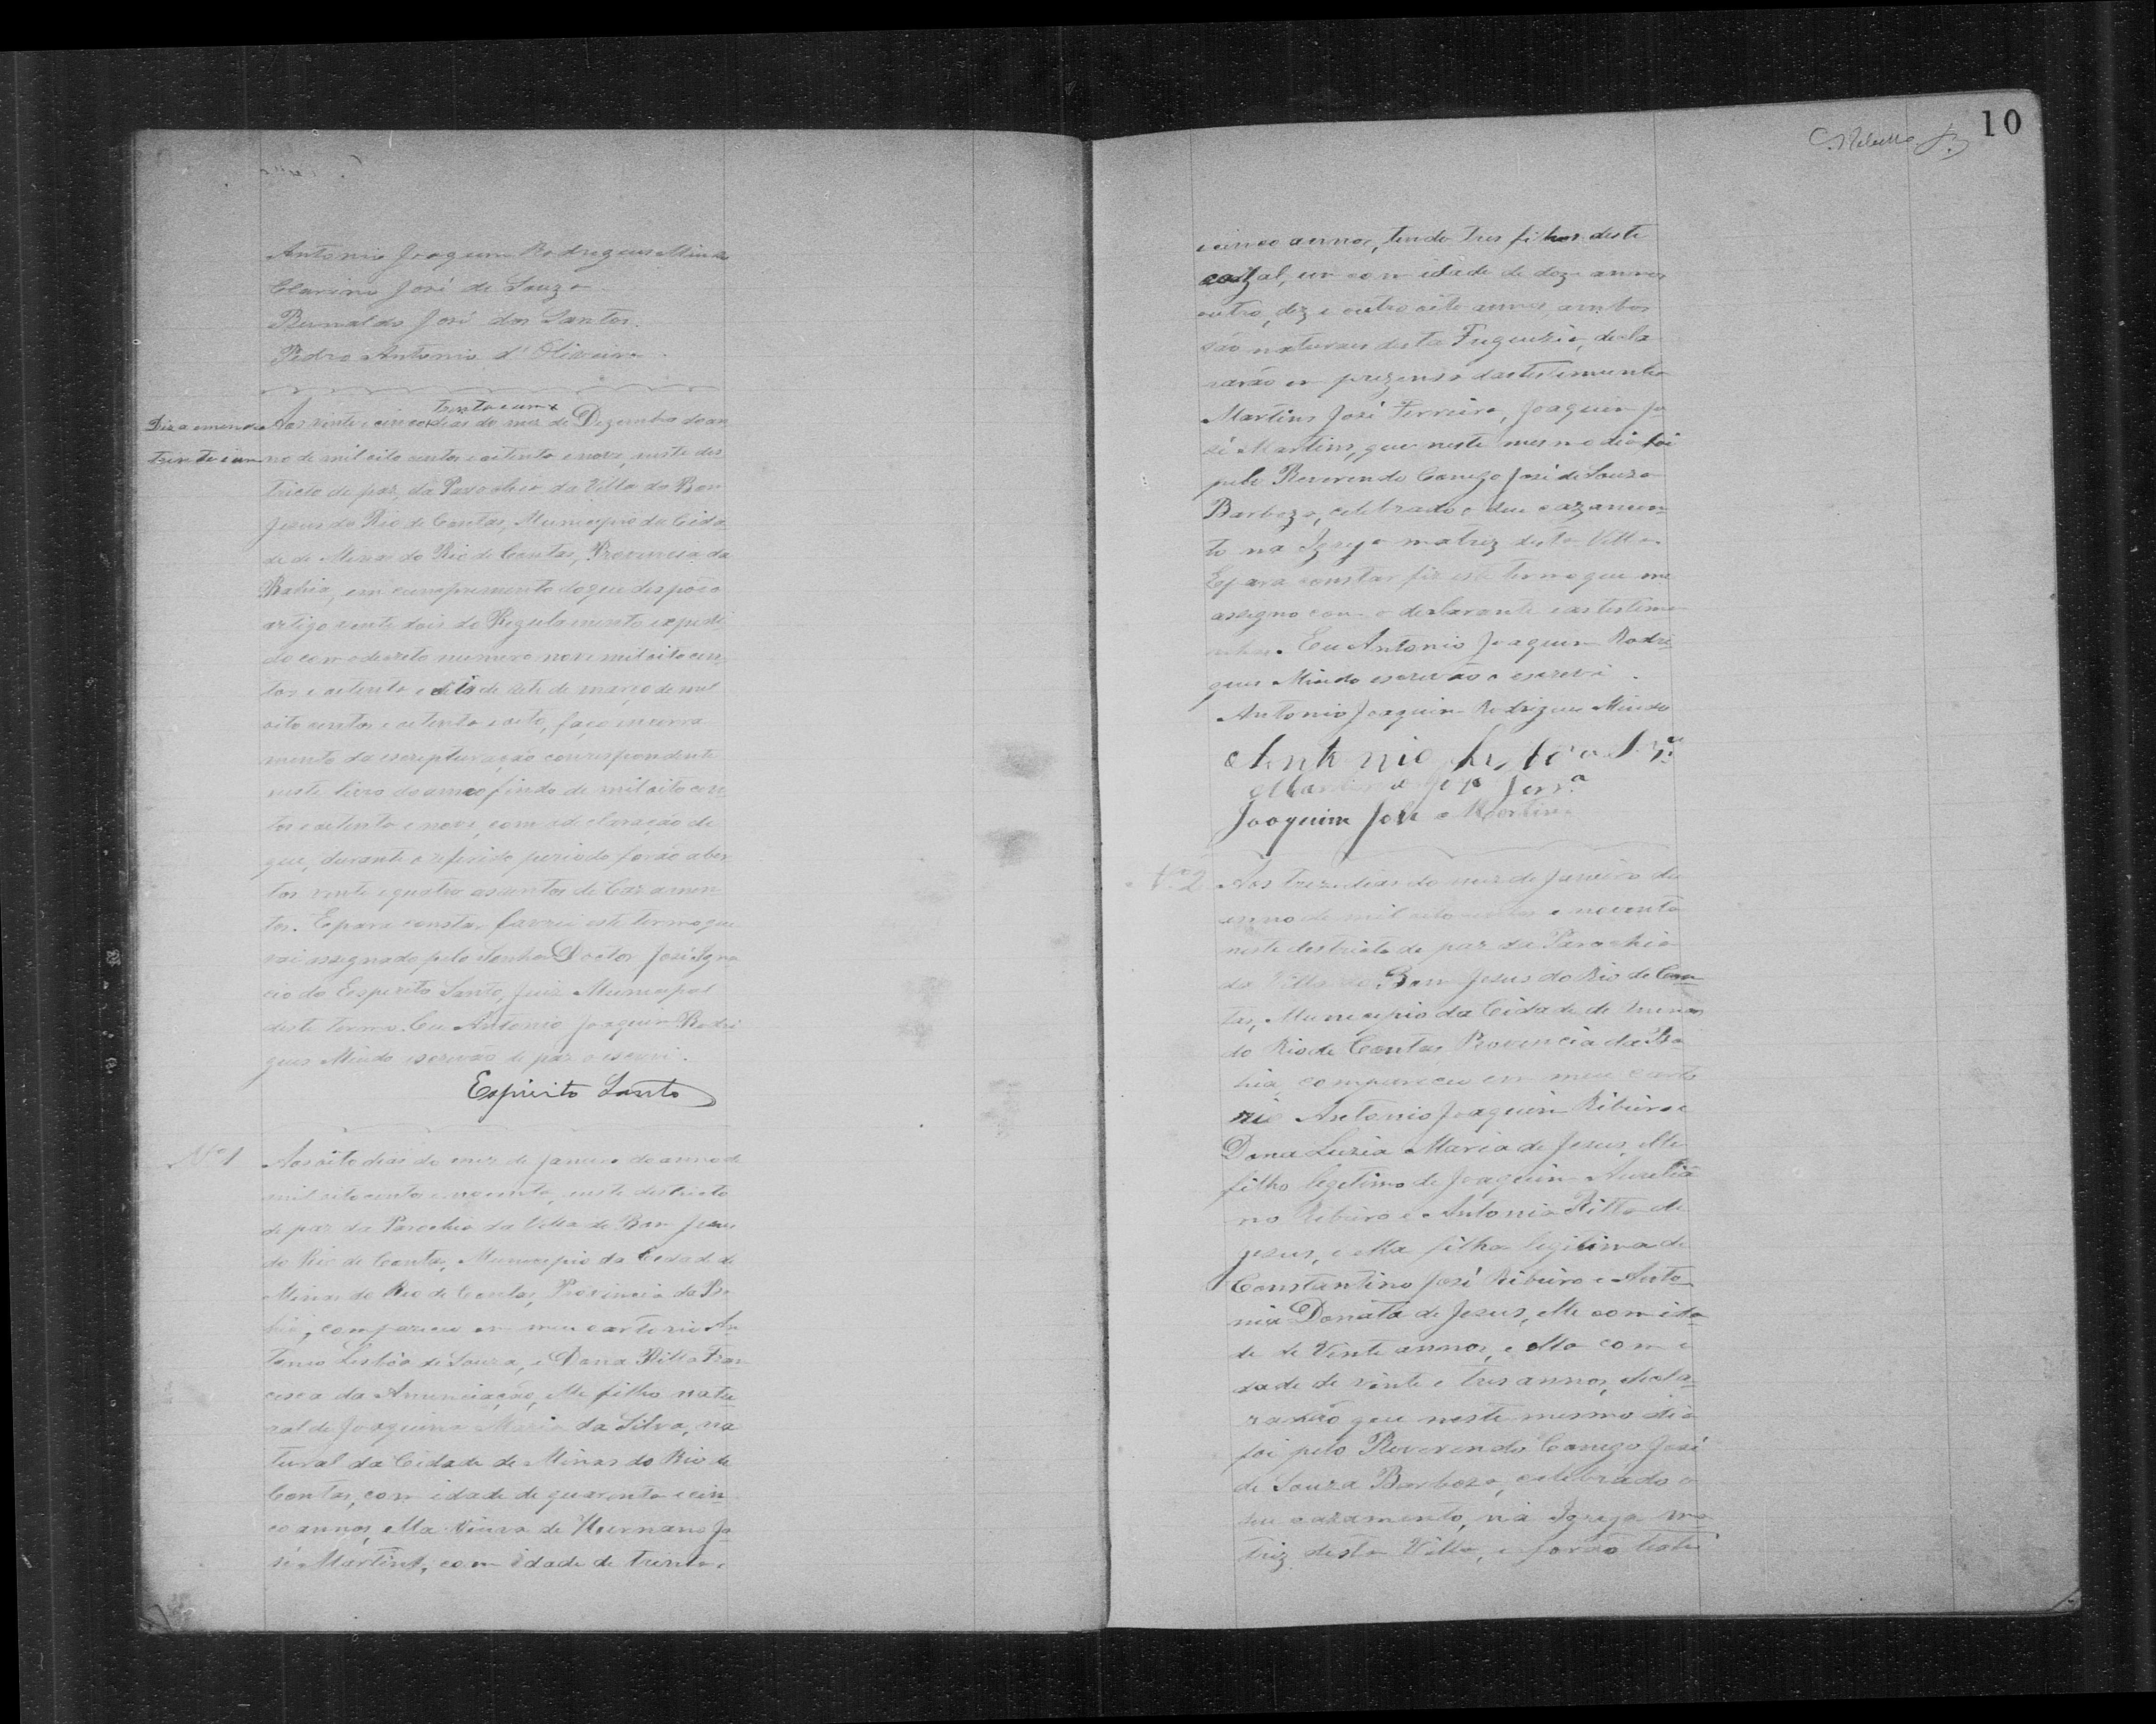 Antonio Joaquim Rodrigues Miudo
Clarino José de Souza
Bernaldo José dos Santos.
Pedro Antonio d'Oliveira.
trenta e um
Diz a emenda
trinta e um
Aos vinte e cinco dias do mez de Dezembro do an
no de mil oito centos e oitenta e nove, neste des
tricto de paz, da Parochia da Villa do Bom
Jesus do Rio de Contas, Municipio da Cida
de de Minas do Rio de Contas, Provincia da
Bahia, em cumprimento do que dispõe o
artigo vinte dois do Regulamento expedi
do com o decreto numero nove mil oito cen
tos e oitenta e oito de sete de março de mil
oito centos e oitenta e oito, faço incerra
mento da escripturação correspondente
neste livro do anno findo de mil oito cen
tos e oitenta e nove, com a declaração de
que, durante o referido periodo forão aber
tos vinte e quatro assentos de Cazamen
tos. E para constar lavrei este termo que
vai assignado pelo Senhor Doctor José Igna
cio do Espirito Santo, Juiz Municipal
deste termo. Eu Antonio Joaquim Rodri
gues Miudo escrivão de paz o escrevi.
Espirito Santo
Nº 1
Aos oito dias do mez de Janeiro do anno de
mil oito centos e noventa, neste destricto
de paz da Parochia da Villa do Bom Jesus
do Rio de Contas, Municipio da Cidade de
Minas do Rio de Contas, Provincia da Ba
hia, compareceu em meu cartorio An
tonio Lisbôa de Souza, e Dona Ritta Fran
cisca da Anunciação, elle filho natu
ral de Joaquina Maria da Silva, na
tural da Cidade de Minas do Rio de
Contas, com idade de quarenta e cin
co annos, ella viuva de Hernano Jo
sé Martins, com idade de trinta e
10
e cinco annos, tendo tres filhos deste
cazal, um com idade de doze annos
outro, dez e outro oito annos, ambos
são naturaes desta Freguezia, decla
rarão em prezensa das testemunha
Martins José Ferreira, Joaquim Jo
sé Martins, que neste mesmo dia foi
pelo Reverendo Conego José de Souza
Barboza, celebrado o seu cazamen
to na Igreja matriz desta Villa.
E para constar fiz este termo que me
assigno com o declarante e as testemu
nhas. Eu Antonio Joaquim Rodri
gues Miudo escrivão o escrevi.
Antonio Joaquim Rodrigues Miudo
Antonio
Joaquim José Martins
Nº 2
Aos treze dias do mez de Janeiro do
anno de mil oito centos e noventa
neste destricto de paz da Parochia
da Villa do Bom Jesus do Rio de Con
tas, Municipio da Cidade de Minas
do Rio de Contas Provincia da Ba
hia, compareceu em meu carto
rio Antonio Joaquim Ribeiro e
Dona Luzia Maria de Jesus, elle
filho legitimo de Joaquim Aurelia
no Ribeiro e Antonia Ritta de
Jesus, e ella filha legitima de
Constantino José Ribeiro e Anto
nia Donata de Jesus, elle com ida
de de vinte annos, e ella com i
dade de vinte e tres annos, decla
rarão que neste mesmo dia
foi pelo Reverendo Conego José
de Souza Barboza, celebrado o
seu cazamento, na Igreja ma
triz desta Villa, e forão teste